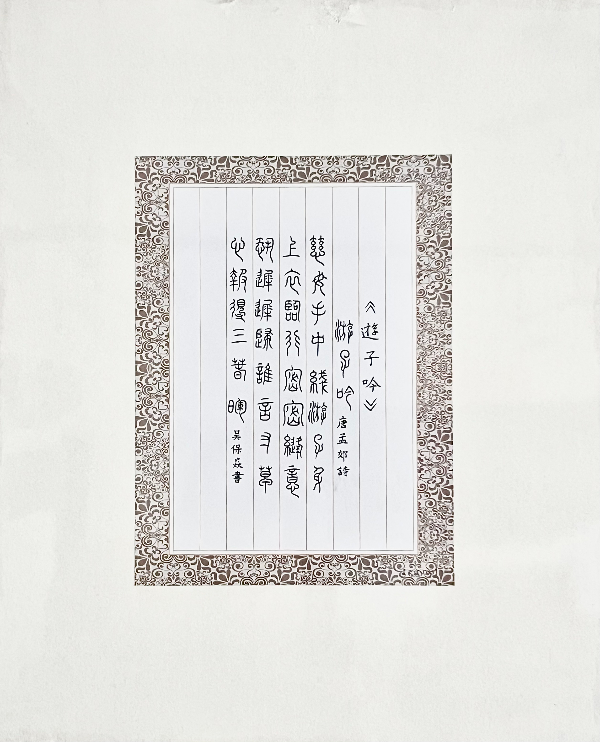 《遊子吟》
游子吟 唐孟郊詩
慈母手中綫游子身
上衣臨行密密縫意
恐遲遲歸誰言寸草
心報得三春暉 吴保焱書